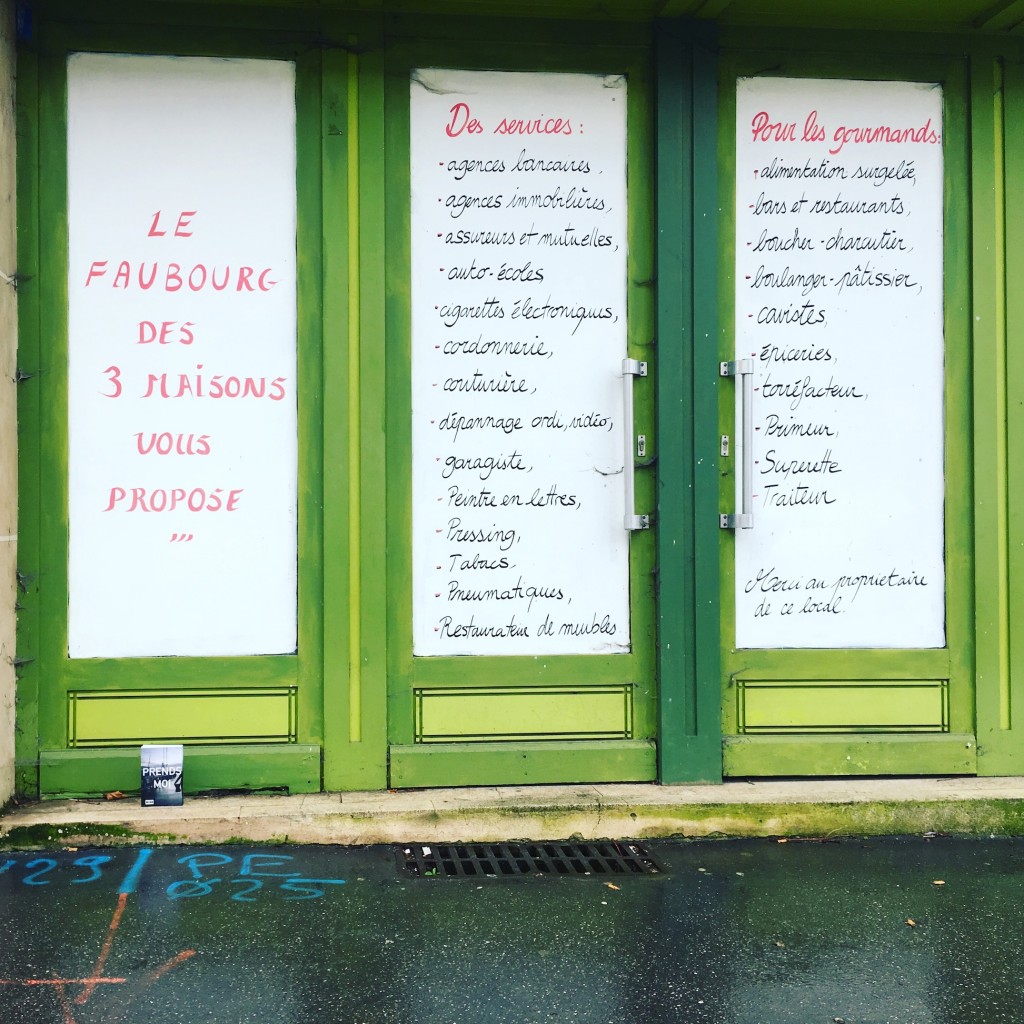 LE
FAUBOURG
DES
3 MAISONS
VOUS
PROPOSE
,,,
Des services :
- agences bancaires,
- agences immobilières,
- assureurs et mutuelles,
- auto-écoles
- cigarettes électroniques,
- cordonnerie,
- couturière,
- dépannage ordi, vidéo,
- garagiste,
- Peintre en lettres,
- Pressing,
- Tabacs,
- Pneumatiques,
- Restaurateur de meubles
Pour les gourmands :
- alimentation surgelée,
- bars et restaurants,
- boucher-charcutier,
- boulanger-pâtissier,
- cavistes,
- épiceries,
- torréfacteur,
- Primeur,
- Superette
- Traiteur
Merci au proprietaire
de ce local.
PRENDS
MOI
29
PE
Ø25